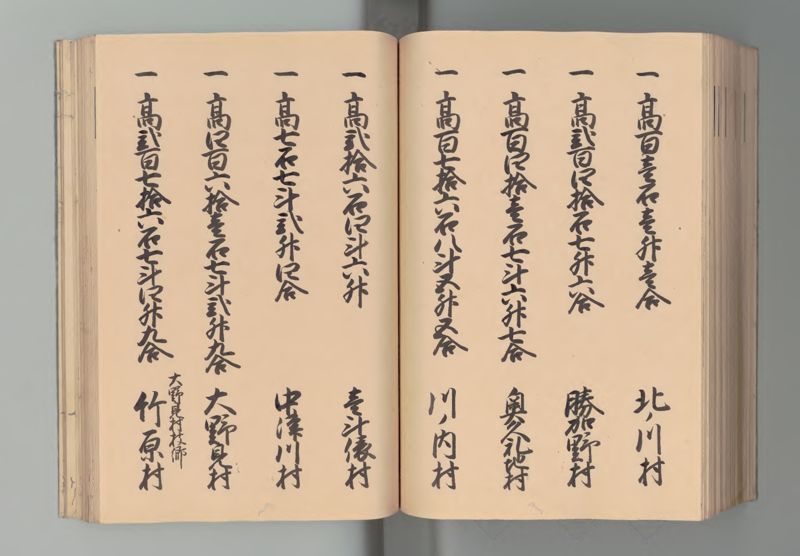 一 高百壱石壱升壱合 北ノ川村
一 高弐百四拾石七升六合 勝賀野村
一 高百四拾壱石七斗六升七合 奥久礼地村
一 高百七拾六石八斗五升五合 川ノ内村
一 高弐拾六石四斗六升 壱斗俵村
一 高七石七斗弐升四合 中津川村
一 高四百六拾壱石七斗弐升九合 大野見村
一 高弐百七拾六石七斗四升九合 大野見村枝郷 竹原村